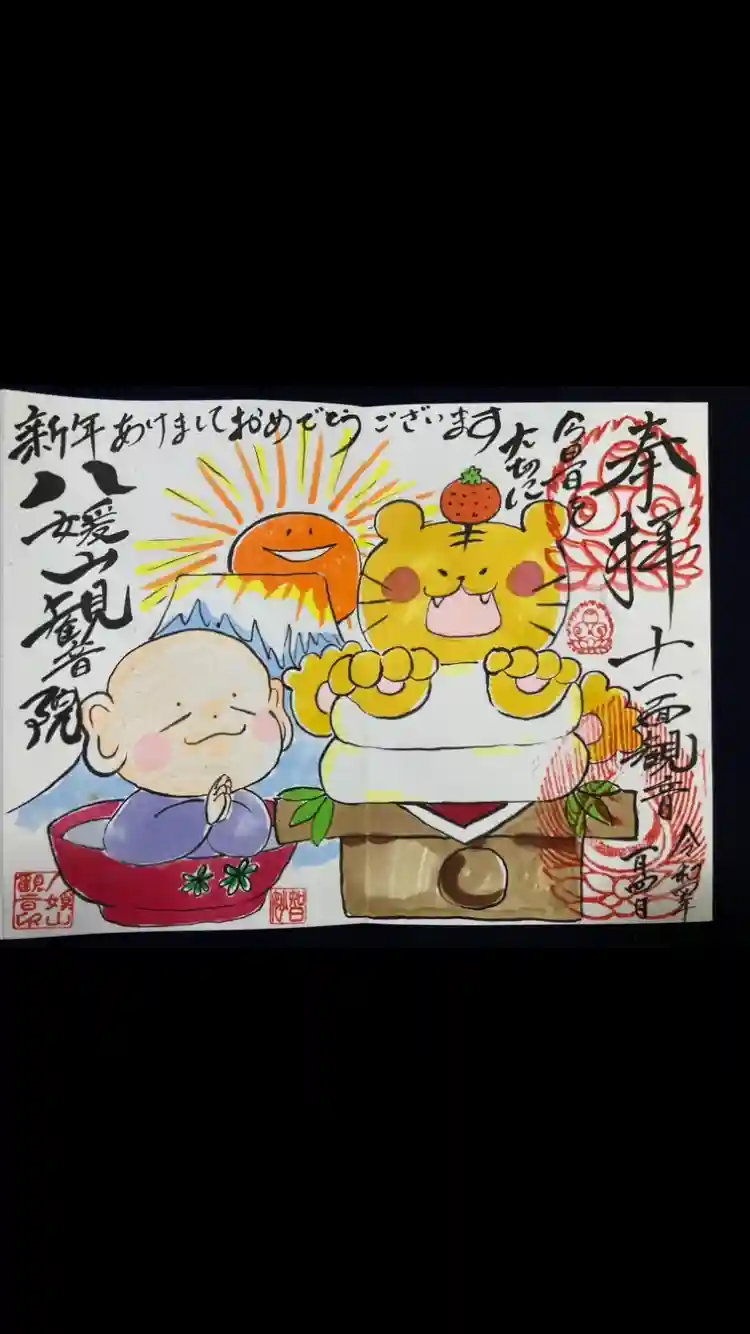 奉拝
十一面観音
令和四年
一月四日
今日一日を
大切に
新年あけましておめでとうございます
八媛山観音院